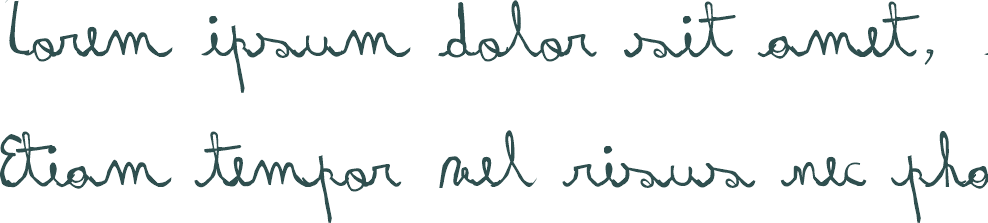 Lorem ipsum dolor sit amet,
Etiam tempor vel risus nec pho